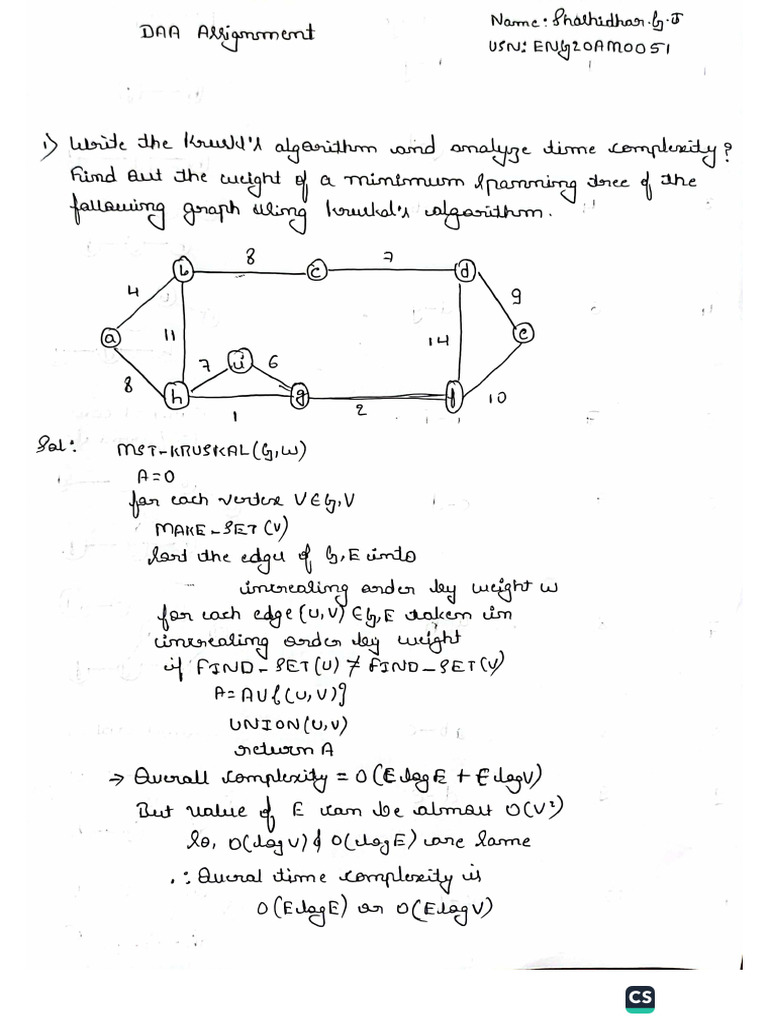 DAA Assignment
Name: Shashidhar.G.J
USN: ENG20AM0051
1) Write the Kruskl's algorithm and analyze time complexity?
Find out the weight of a minimum spanning tree of the
following graph using kruskal's algorithm.
8
7
b
c
d
4
9
a
11
14
e
7
i
6
8
h
g
f
10
1
2
Sol: MST-KRUSKAL(G,W)
A=0
for each vertex V∈G,V
MAKE-SET(V)
Sort the edge of G,E into
increasing order by weight w
for each edge (U,V) ∈G,E taken in
increasing order by weight
if FIND-SET(U) ≠ FIND-SET(V)
A=AU{(U,V)}
UNION(U,V)
return A
→ Overall complexity = O(ElogE + ElogV)
But value of E can be almost O(V²)
So, O(logV) & O(logE) are same
∴ Overal time complexity is
O(ElogE) or O(ElogV)
CS